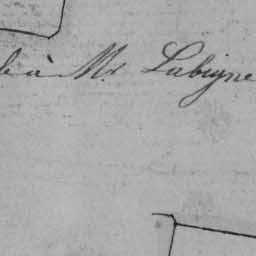 à Mr Lubigne